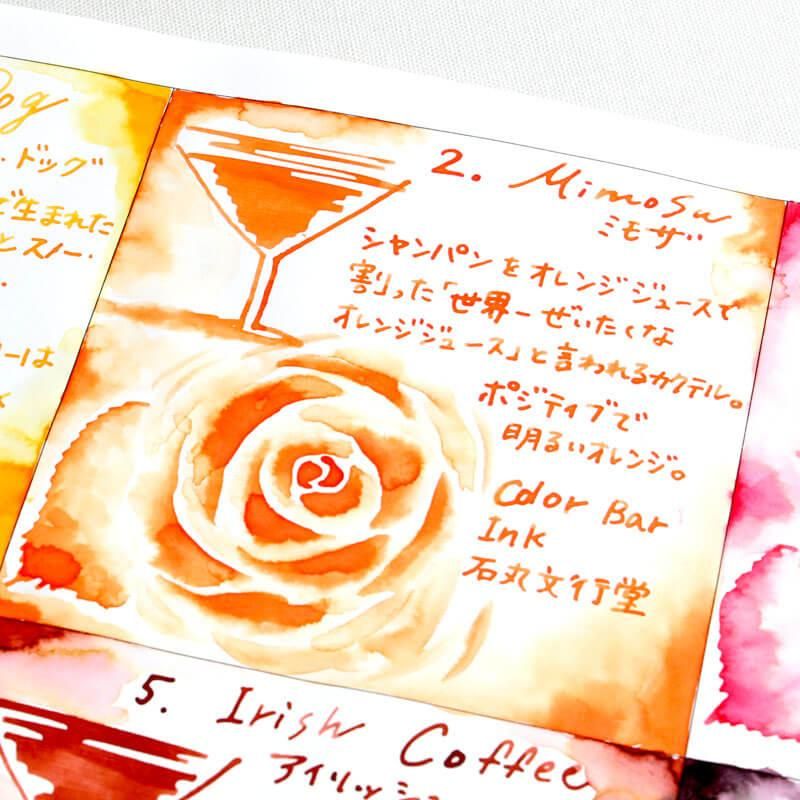 og
・ドッグ
で生まれた
とスノー・
ーは
2. Mimosa
ミモザ
シャンパンをオレンジジュースで
割った「世界一ぜいたくな
オレンジジュース」と言われるカクテル。
ポジティブで
明るいオレンジ。
Color Bar
Ink
石丸文行堂
5. Irish Coffee
アイリッシ